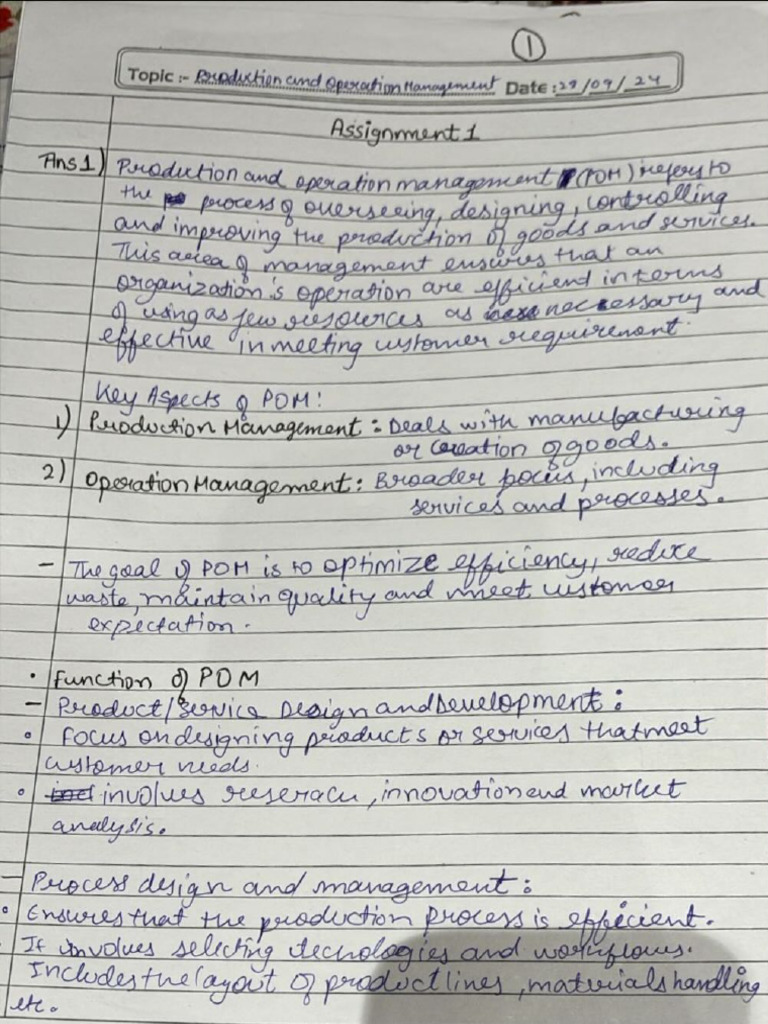 1
Topic :- Production and Operation Management Date : 29/09/24
Assignment 1
Ans 1) Production and operation management (POM) refers to
the process of overseeing, designing, controlling
and improving the production of goods and services.
This area of management ensures that an
organization's operation are efficient in terms
of using as few resources as necessary and
effective in meeting customer requirement.
Key Aspects of POM:
1) Production Management : Deals with manufacturing
or creation of goods.
2) Operation Management : Broader focus, including
services and processes.
- The goal of POM is to optimize efficiency, reduce
waste, maintain quality and meet customer
expectation.
• Function of POM
- Product/Service Design and Development :
• Focus on designing products or services that meet
customer needs.
• involves reserach, innovation and market
analysis.
- Process design and management :
• Ensures that the production process is efficient.
• It involves selecting tecnologies and workflows.
Includes the layout of product lines, materials handling
etc.